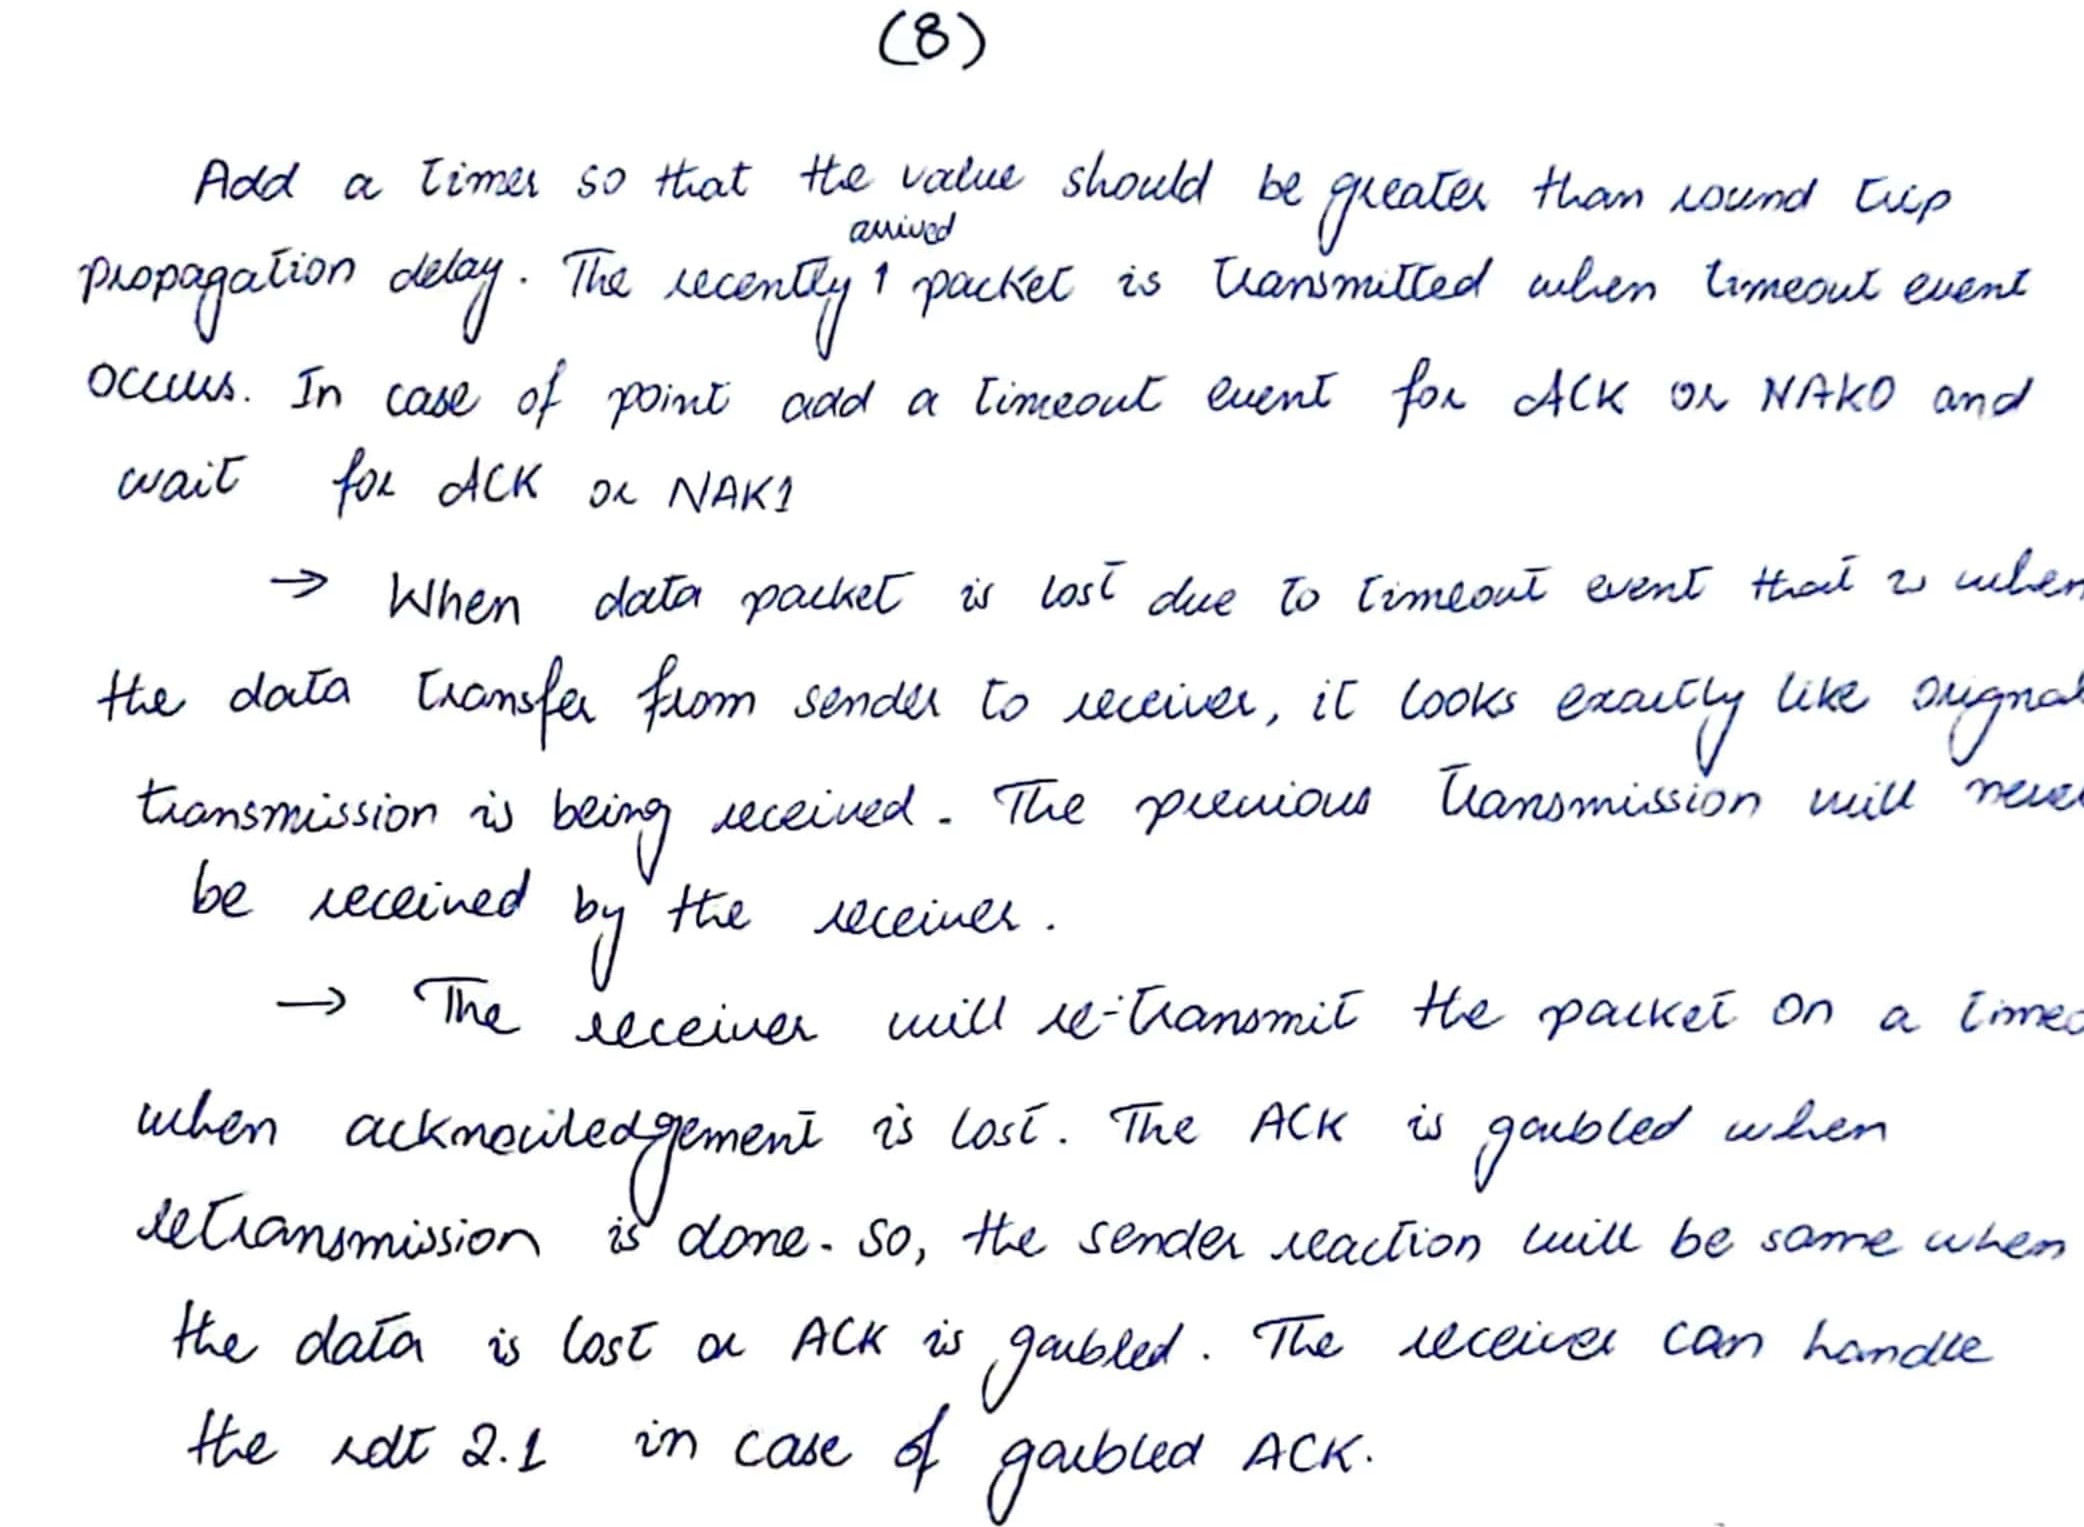 (8)
Add a timer so that the value should be greater than round trip
arrived
propagation delay. The recently ↑ packet is transmitted when timeout event
occurs. In case of point add a timeout event for ACK or NAK0 and
wait for ACK or NAK1
→ When data packet is lost due to timeout event that is when
the data transfer from sender to receiver, it looks exactly like orignal
transmission is being received. The previous transmission will never
be received by the receiver.
→ The receiver will re-transmit the packet on a
when acknowledgement is lost. The ACK is garbled when
retransmission is done. So, the sender reaction will be same when
the data is lost or ACK is garbled. The receiver can handle
the rdt 2.1 in case of garbled ACK.